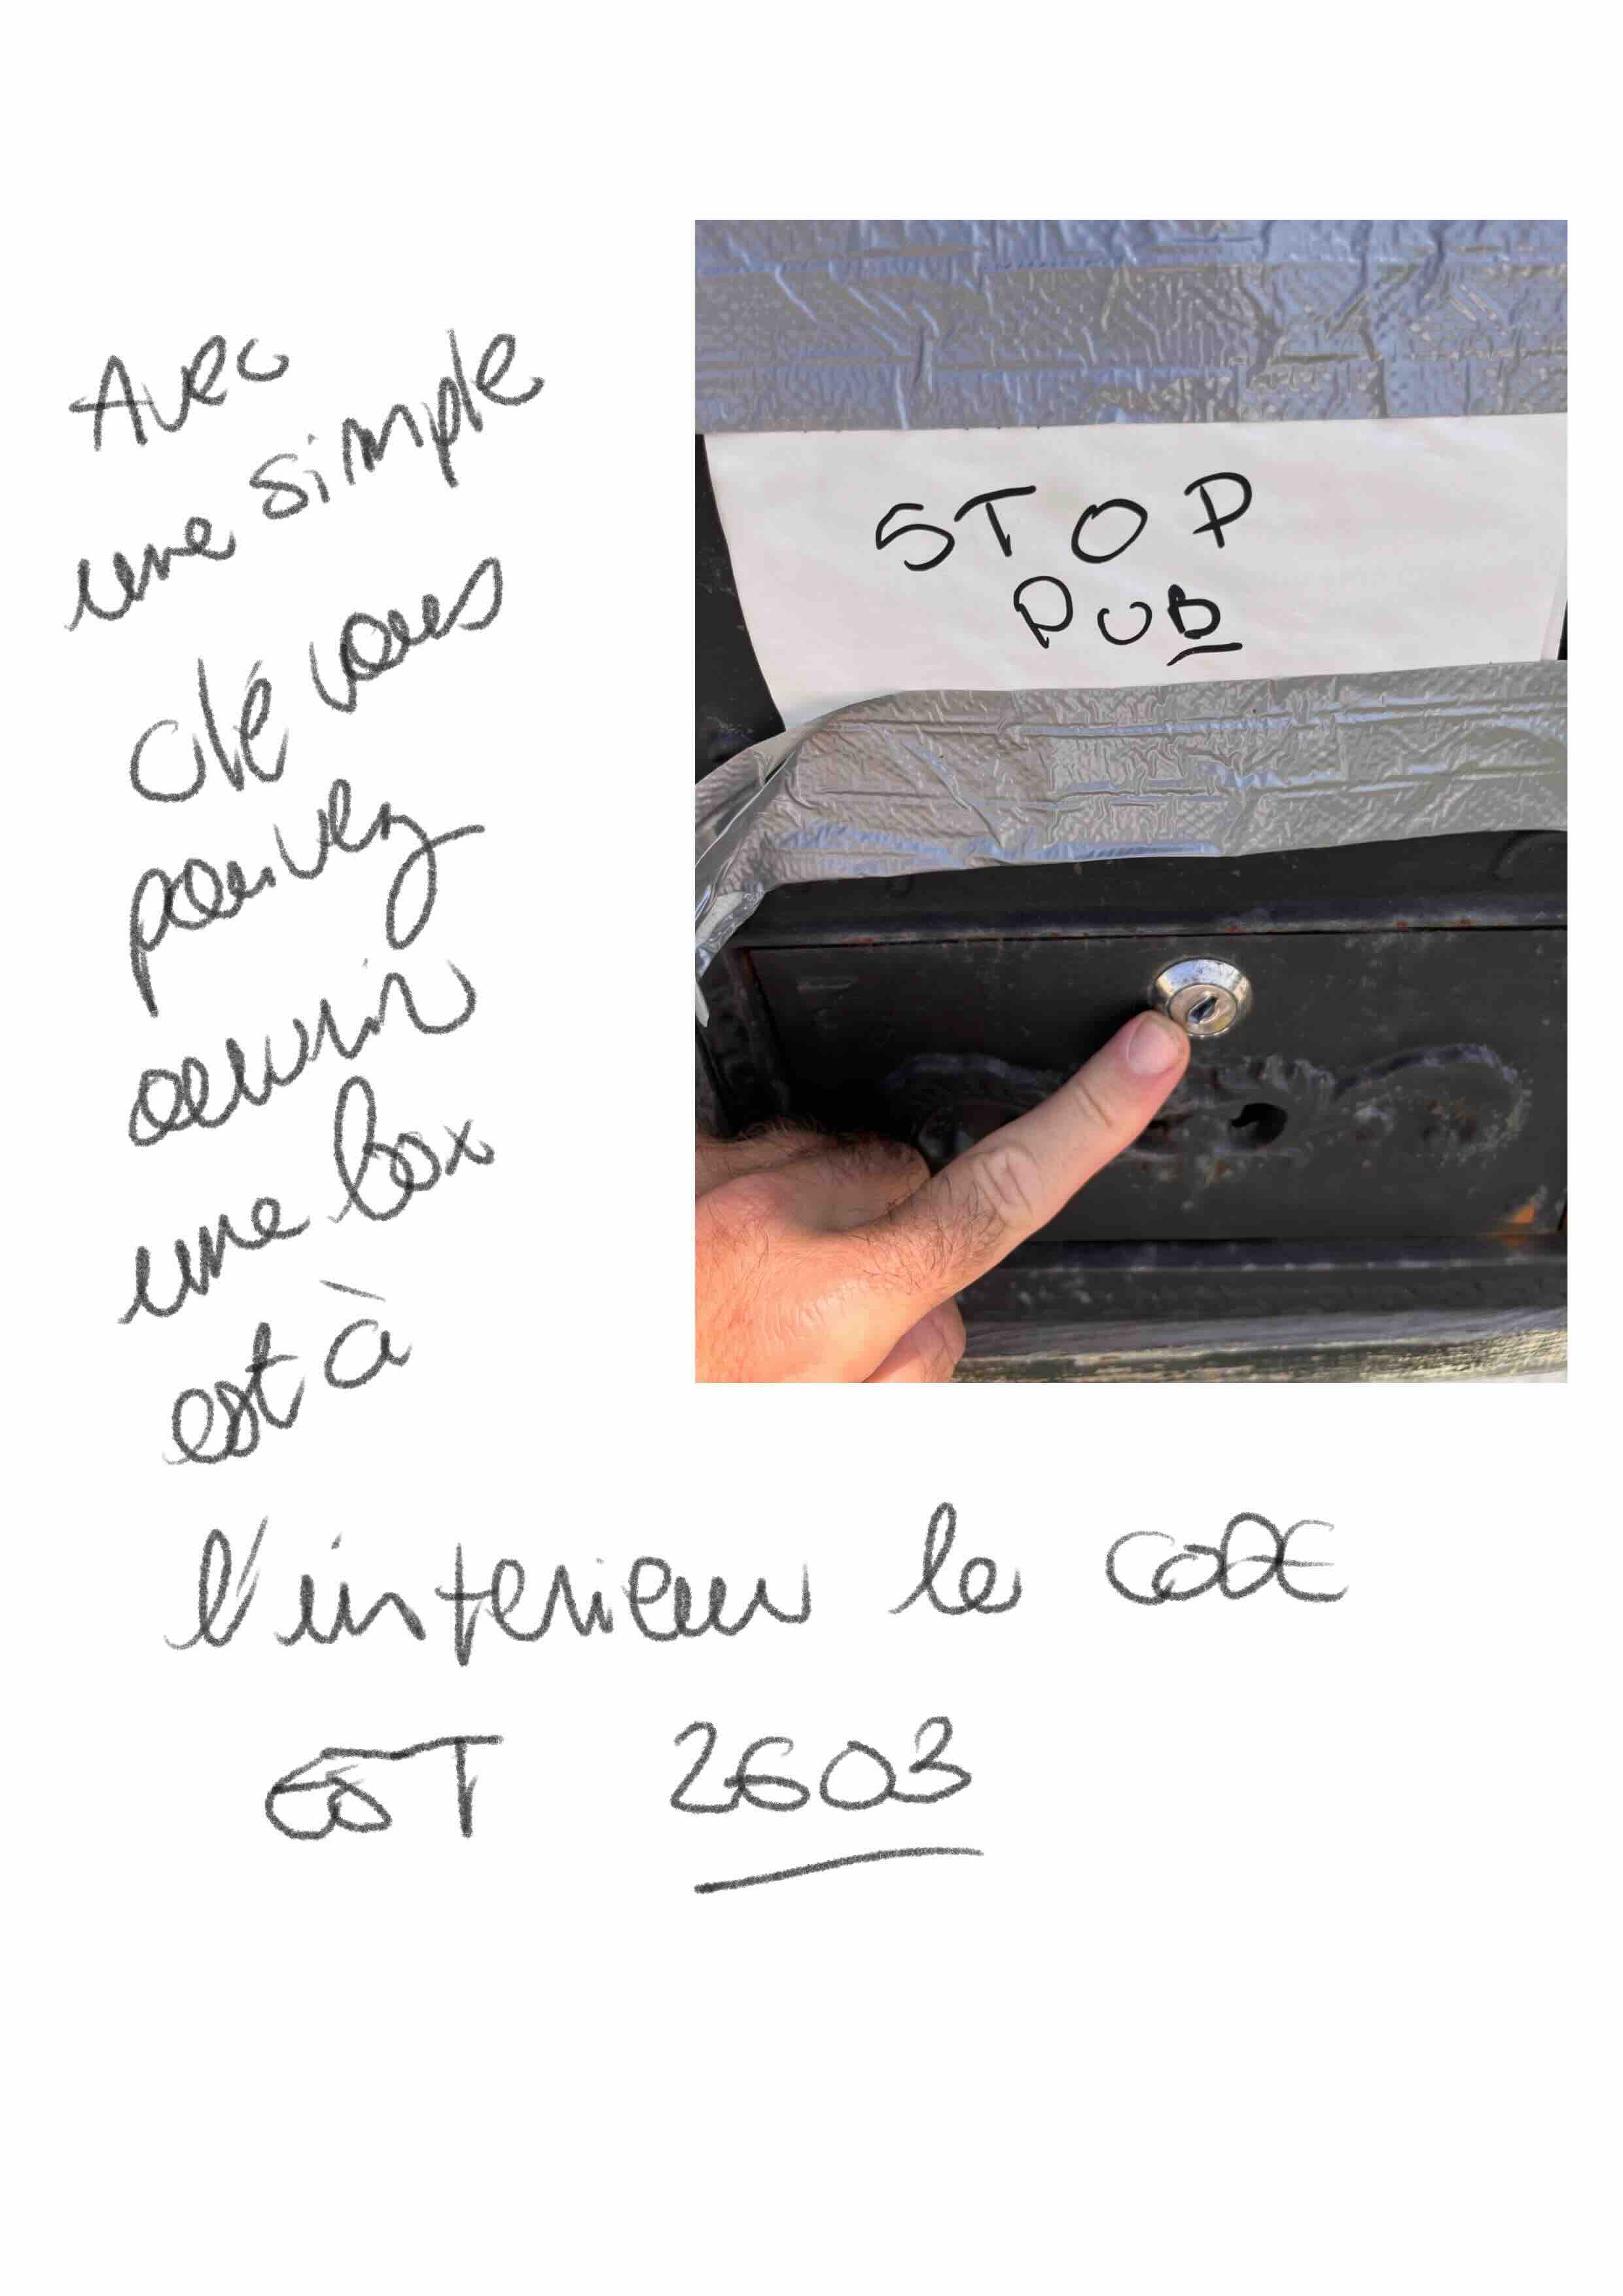 Avec
une simple
clé vous
pouvez
ouvrir
une box
est à
l'interieur le CODE
EST 2603
STOP
PUB